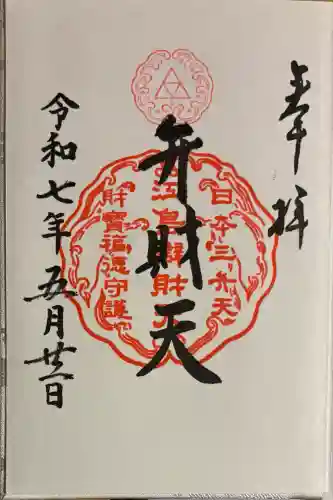 奉拝
日本三弁天
江島辨財天
弁財天
財寶福徳守護
令和七年五月廿八日